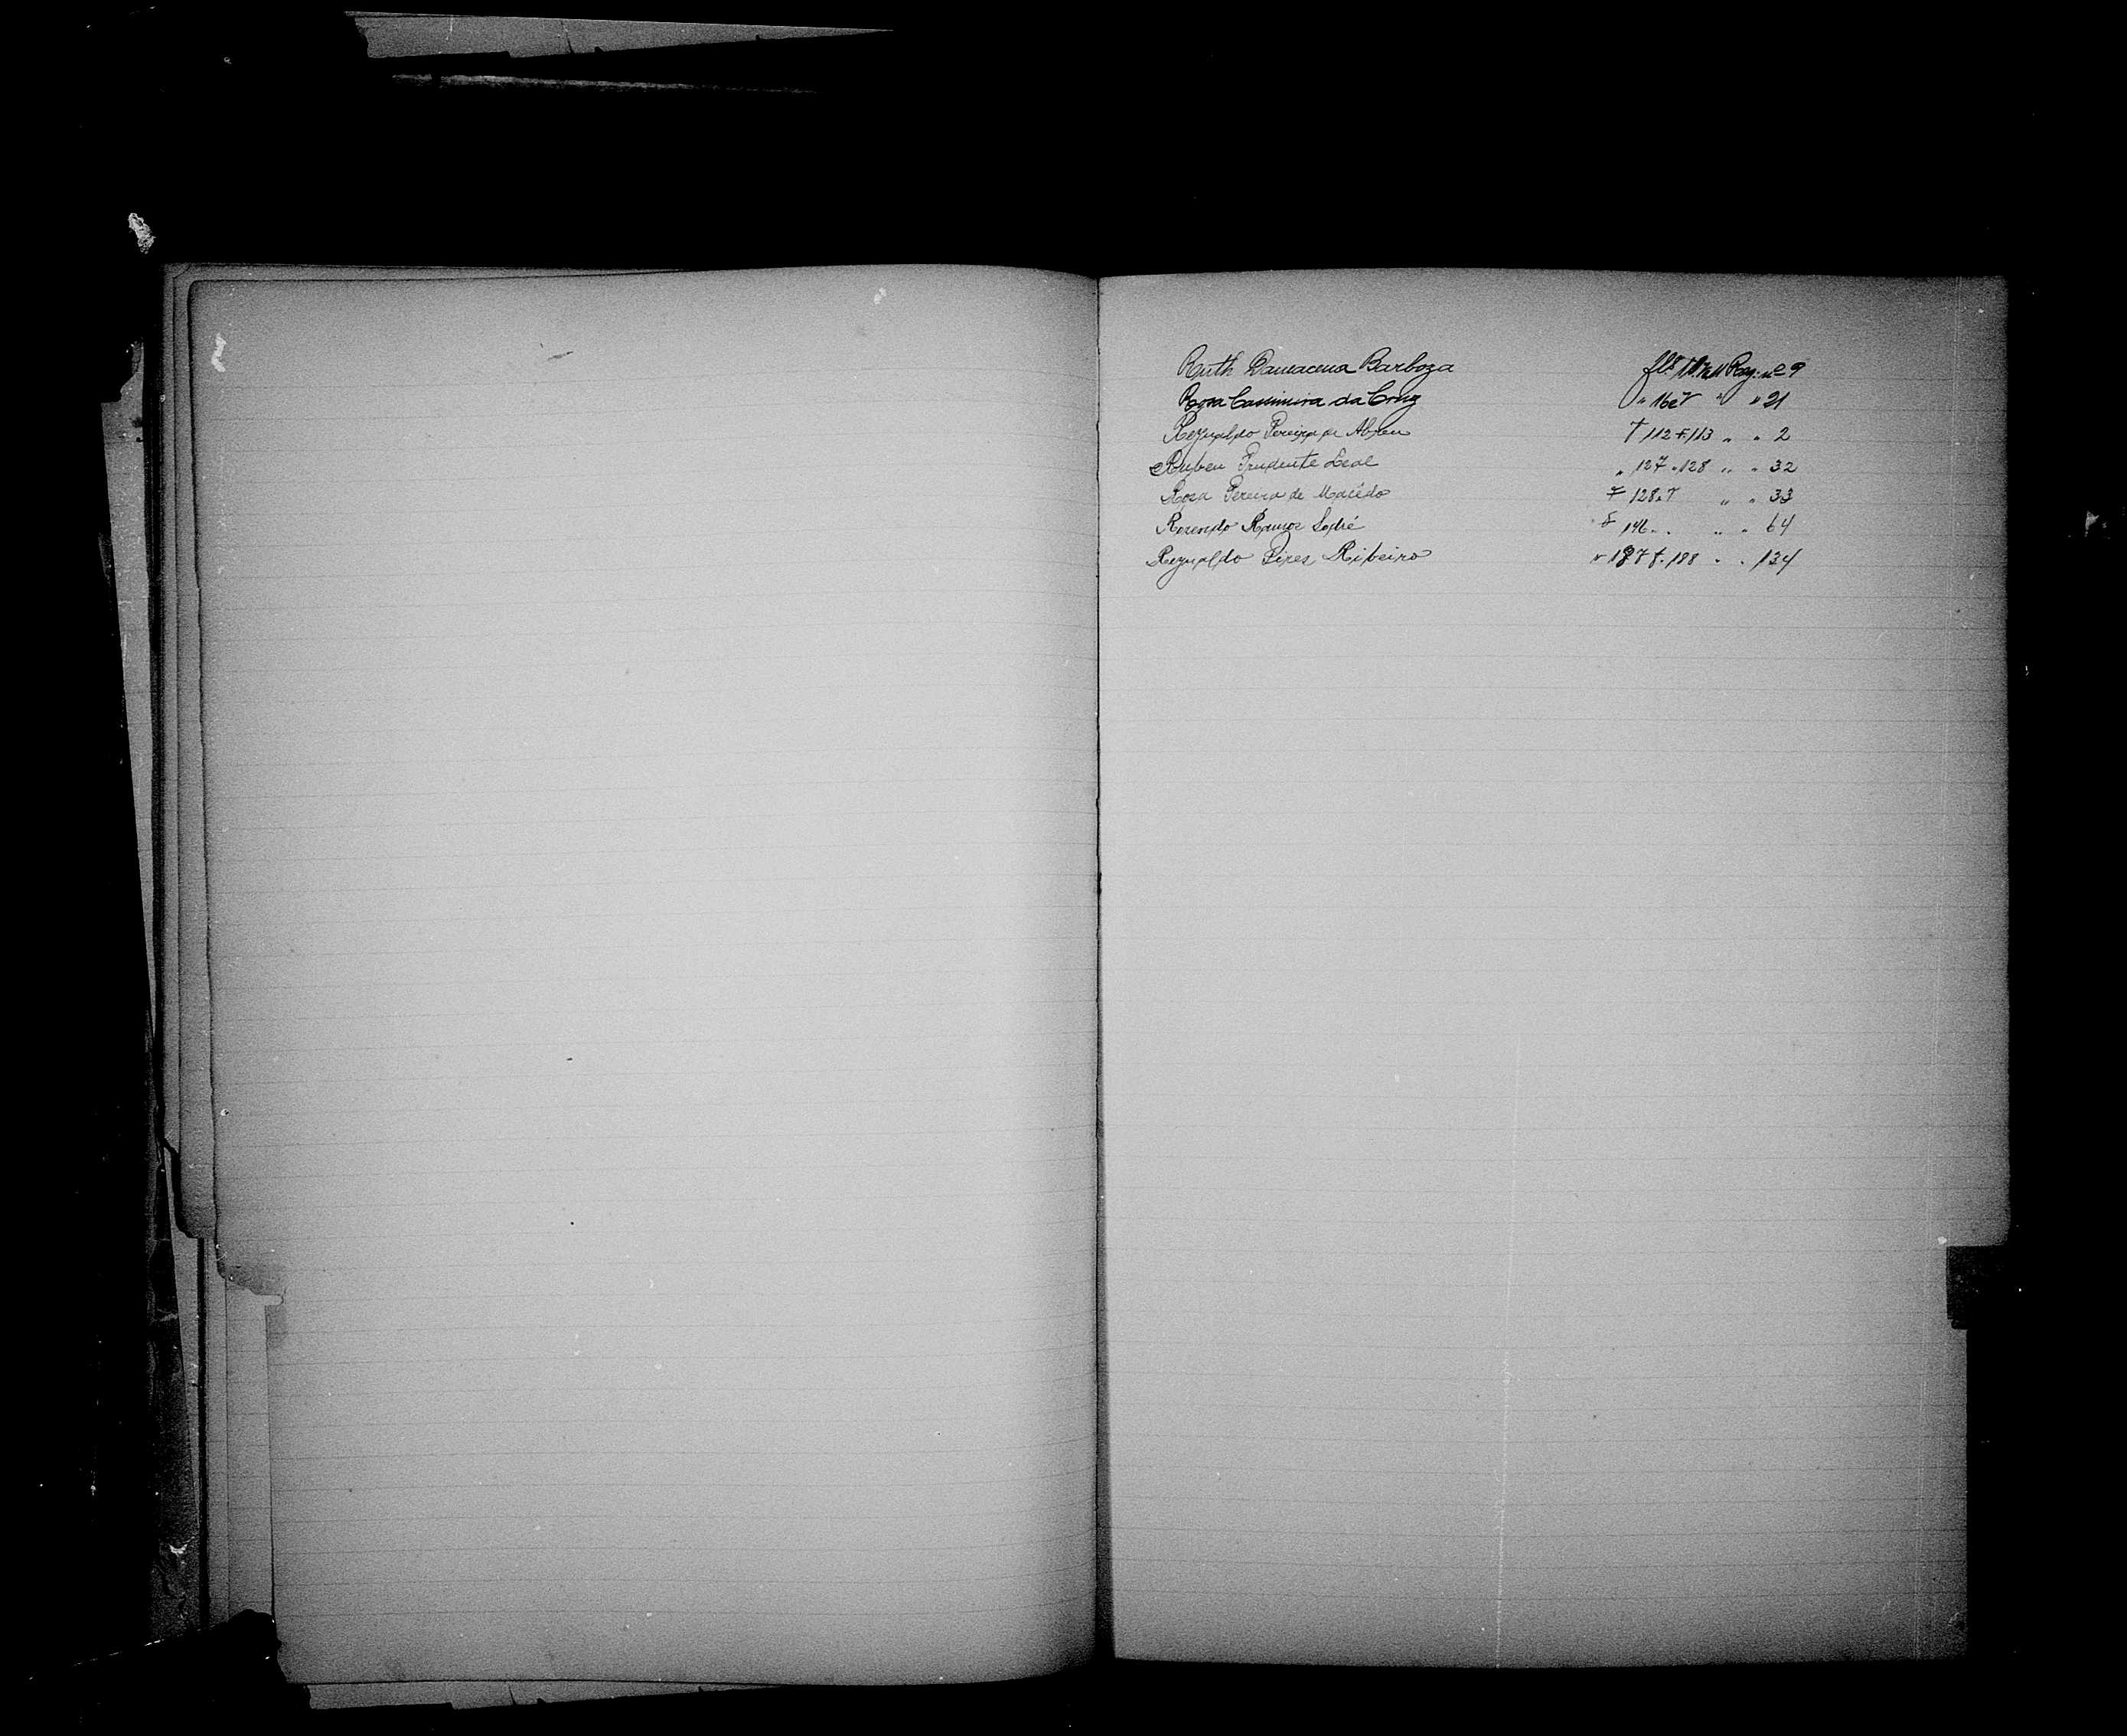 Ruth Damacena Barboza fls. Reg. nº 9
Rosa Casimira da Cruz " 16 e v " " 21
Reynaldo Pereira de Abreu f 112 f. 113 " " 2
Ruben Prudente Leal " 127 " 128 " " 32
Rosa Pereira de Macêdo F 128 " v " " 33
Rosendo Ramos Sodré f 146 " " " 64
Reynaldo Pires Ribeiro " 187 f. 188 " " 134